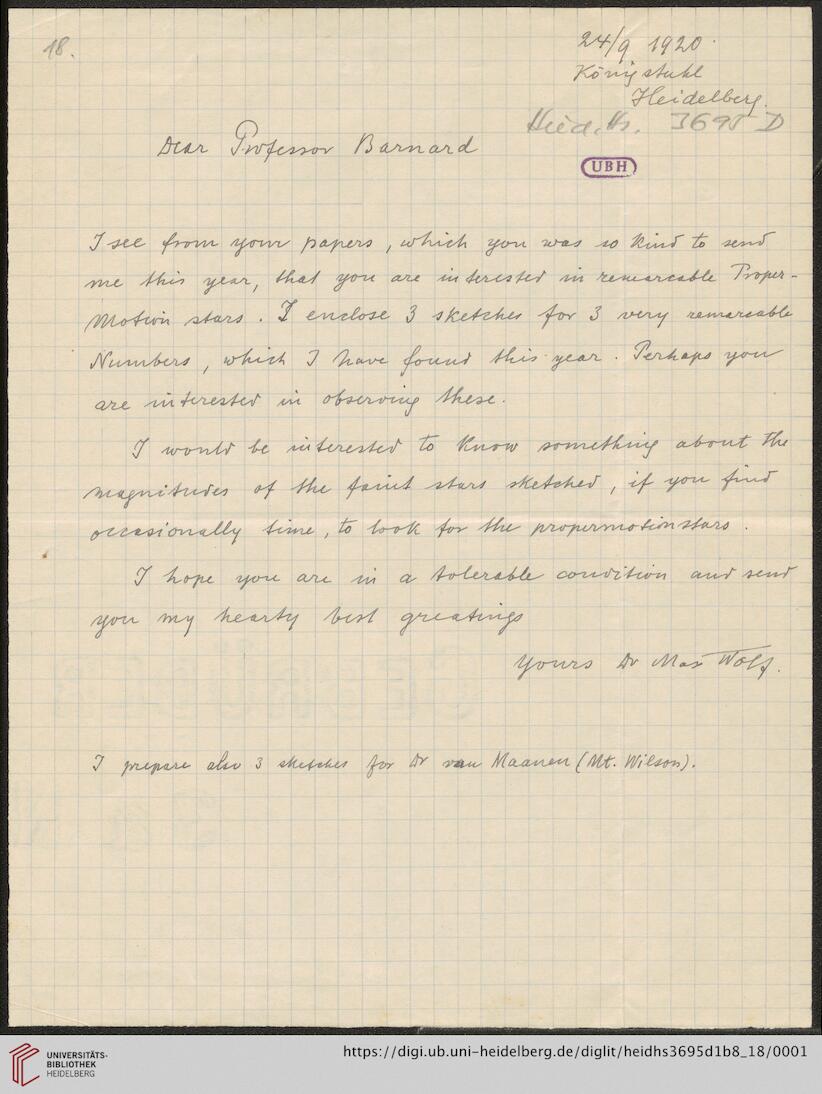 18.
24/9 1920.
Königstuhl
Heidelberg.
Heid. Hs. 3695 D
Dear Professor Barnard
UBH
I see from your papers, which you was so kind to send
me this year, that you are interested in remarcable Proper-
Motion stars. I enclose 3 sketches for 3 very remarcable
Numbers, which I have found this year. Perhaps you
are interested in observing these.
I would be interested to know something about the
magnitudes of the faint stars sketched, if you find
occasionally time, to look for the propermotionstars.
I hope you are in a tolerable condition and send
you my hearty best greatings
Yours Dr Max Wolf.
I prepare also 3 sketches for Dr van Maanen (Mt. Wilson).
UNIVERSITÄTS-
BIBLIOTHEK
HEIDELBERG
https://digi.ub.uni-heidelberg.de/diglit/heidhs3695d1b8_18/0001